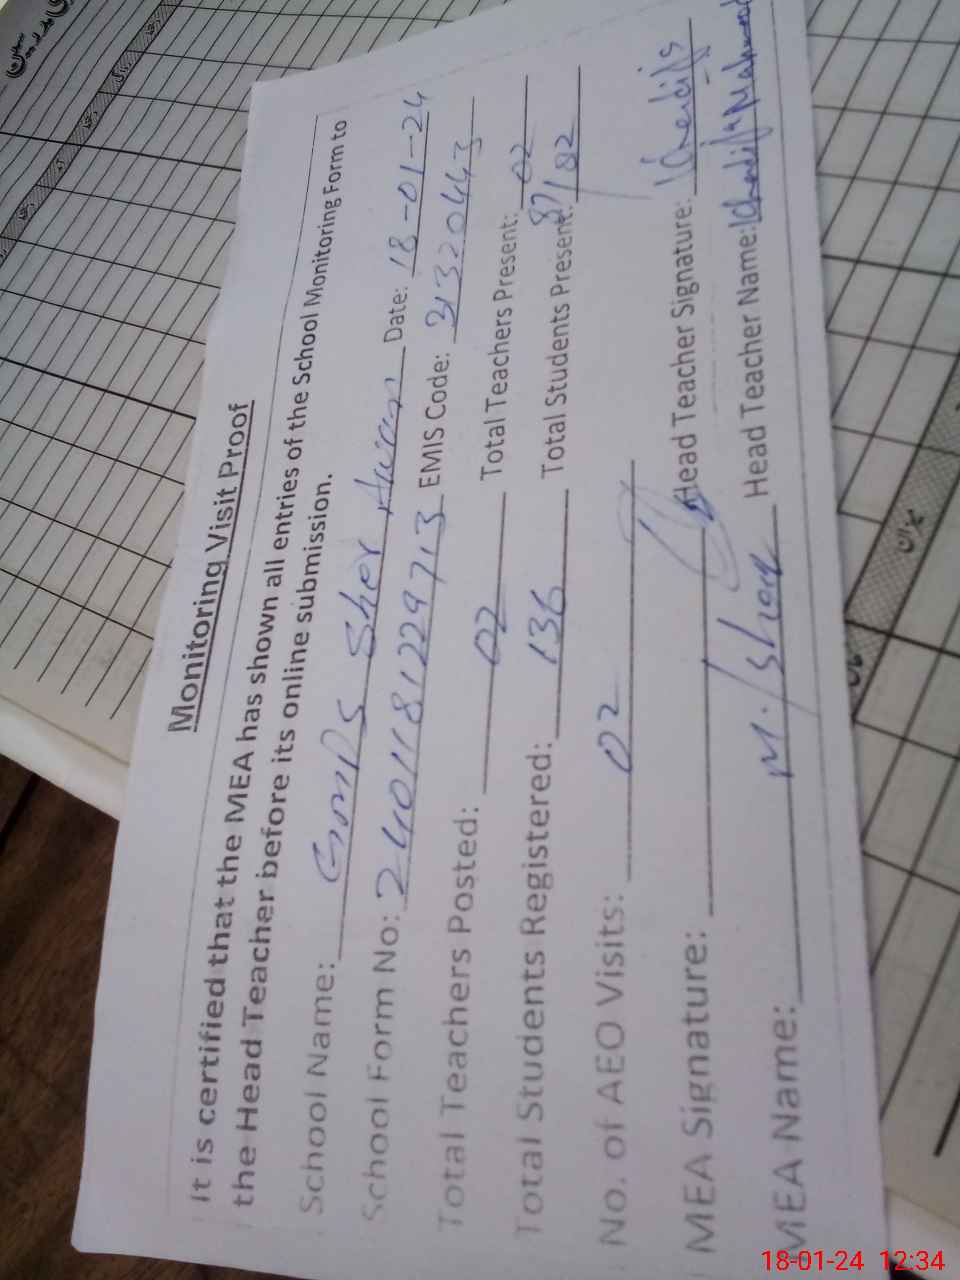 Monitoring Visit Proof
It is certified that the MEA has shown all entries of the School Monitoring Form to
the Head Teacher before its online submission.
School Name: GMPS Sher Awan Date: 18-01-24
School Form No: 2401181229713 EMIS Code: 31320443
Total Teachers Posted: 02 Total Teachers Present: 02
Total Students Registered: 136 Total Students Present: 87/82
No. of AEO Visits: 02
MEA Signature: Head Teacher Signature:
MEA Name: M. Head Teacher Name: Mahmood
میزان
18-01-24 12:34